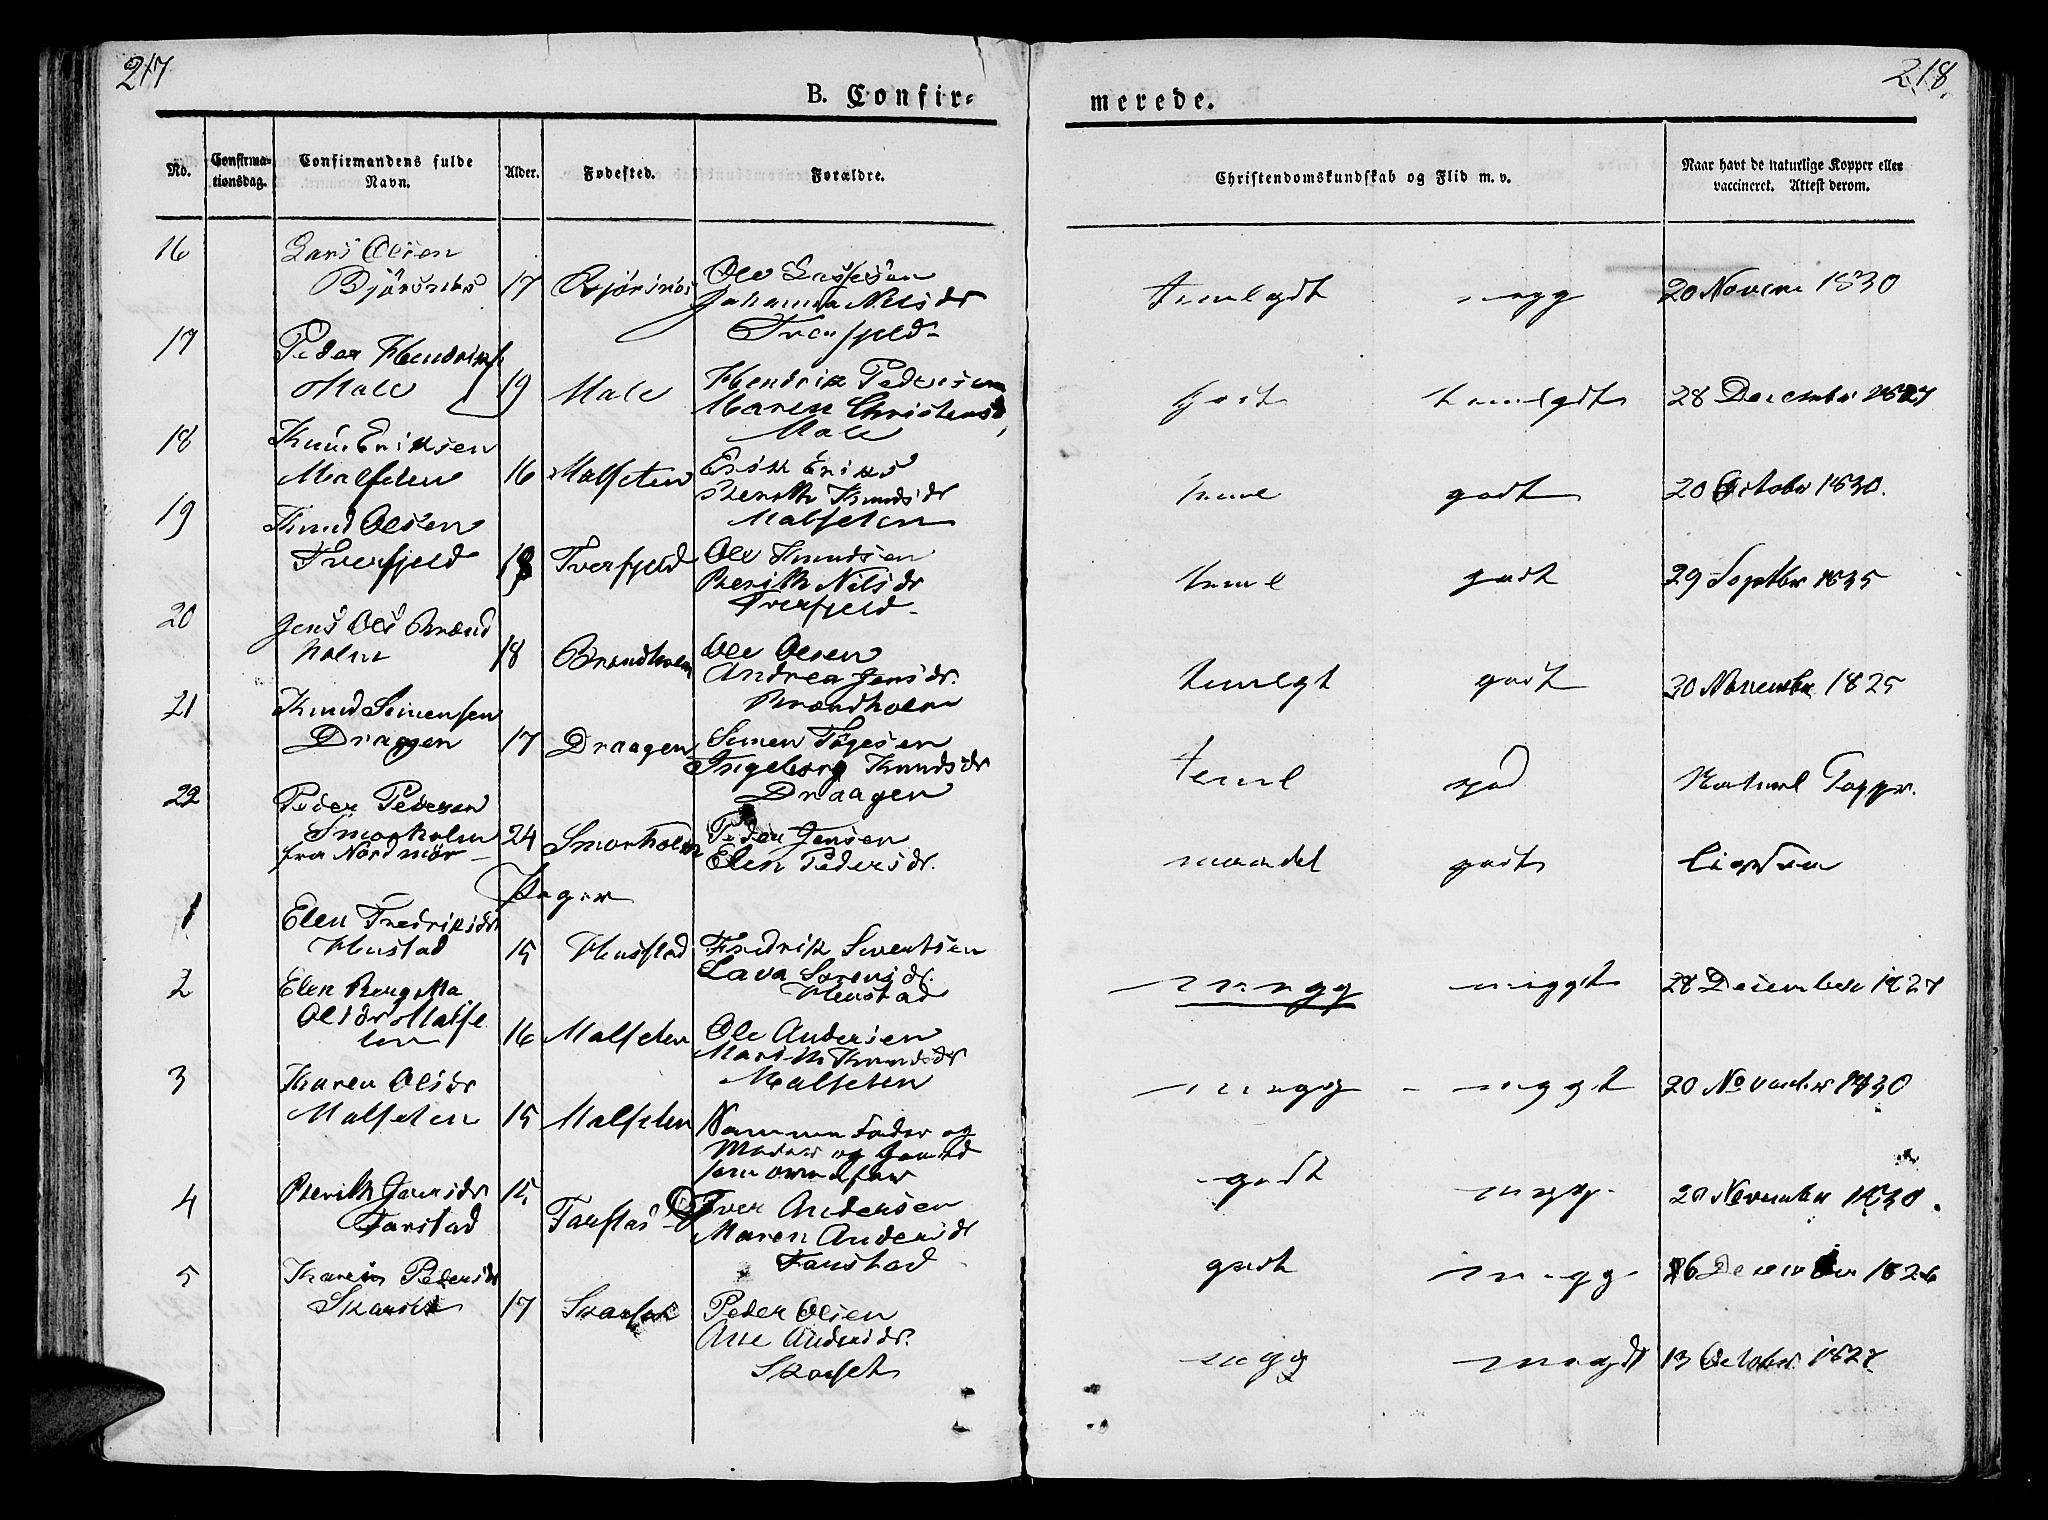 217
218.
B. Confir-
merede.
No.
Confirma-
tionsdag.
Confirmandens fulde
Navn.
Alder.
Fødested.
Forældre.
Christendomskundskab og Flid m. v.
Naar havt de naturlige Kopper eller
vaccineret. Attest derom.
16
Lars Olsen
Bjørsnes 17 Bjørsnes
Ole Lassesen
Johanna Nilsdr
Tverfjeld
temlgdt megg 20 Novem 1830
17
Peder Hendriks
Male 19 Male
Hendrik Pedersen
Maren Christensd
Male
godt temlgdt 28 December 1827
18
Knud Eriksen
Malfeten 16 Malfeten
Erik Eriks
Berith Knudsdr
Malfeten
teml godt 20 October 1830.
19
Knud Olsen
Tverfjeld 18 Tverfjeld
Ole Knudsen
Berith Nilsdr
Tverfjeld
teml godt 29 Septbr 1835
20
Jens Ols Brænd
holm 18 Brændholm
Ole Olsen
Andrea Jensdr.
Brændholm
temlgt godt 30 November 1825
21
Knud Simensen
Draagen 17 Draagen
Simen Tøgesen
Ingeborg Knudsdr
Draagen
teml god Naturl Copper.
22
Peder Pedersen
Smorholm 24 Smorholm
fra Nordmør
Peder Jensen
Elen Pedersdr.
maadel godt
Piger
1
Elen Fredriksdr
Hustad 15 Hustad
Fredrik Sivertsen
Lava Sørensdr.
Hustad
megg meggt 28 December 1827
2
Elen Bergitta
Olsdr Malfe
ten 16 Malfeten
Ole Andersen
Marith Knudsdr
Malfeten
megg meggt 20 November 1830
3
Karen Olsdr
Malfeten 15 Malfeten
Samme Fader og
Moder og Gaard
som ovenfor
godt megg 20 November 1830.
4
Berith Iversdr 15
Farstad Farstad
Iver Andersen
Maren Andersdr
Farstad
godt megg 26 December 1826
5
Karen Pedersdr
Skarset 17 Skarset
Peder Olsen
Ane Andersdr.
Skarset
megg megdt 13 October 1827